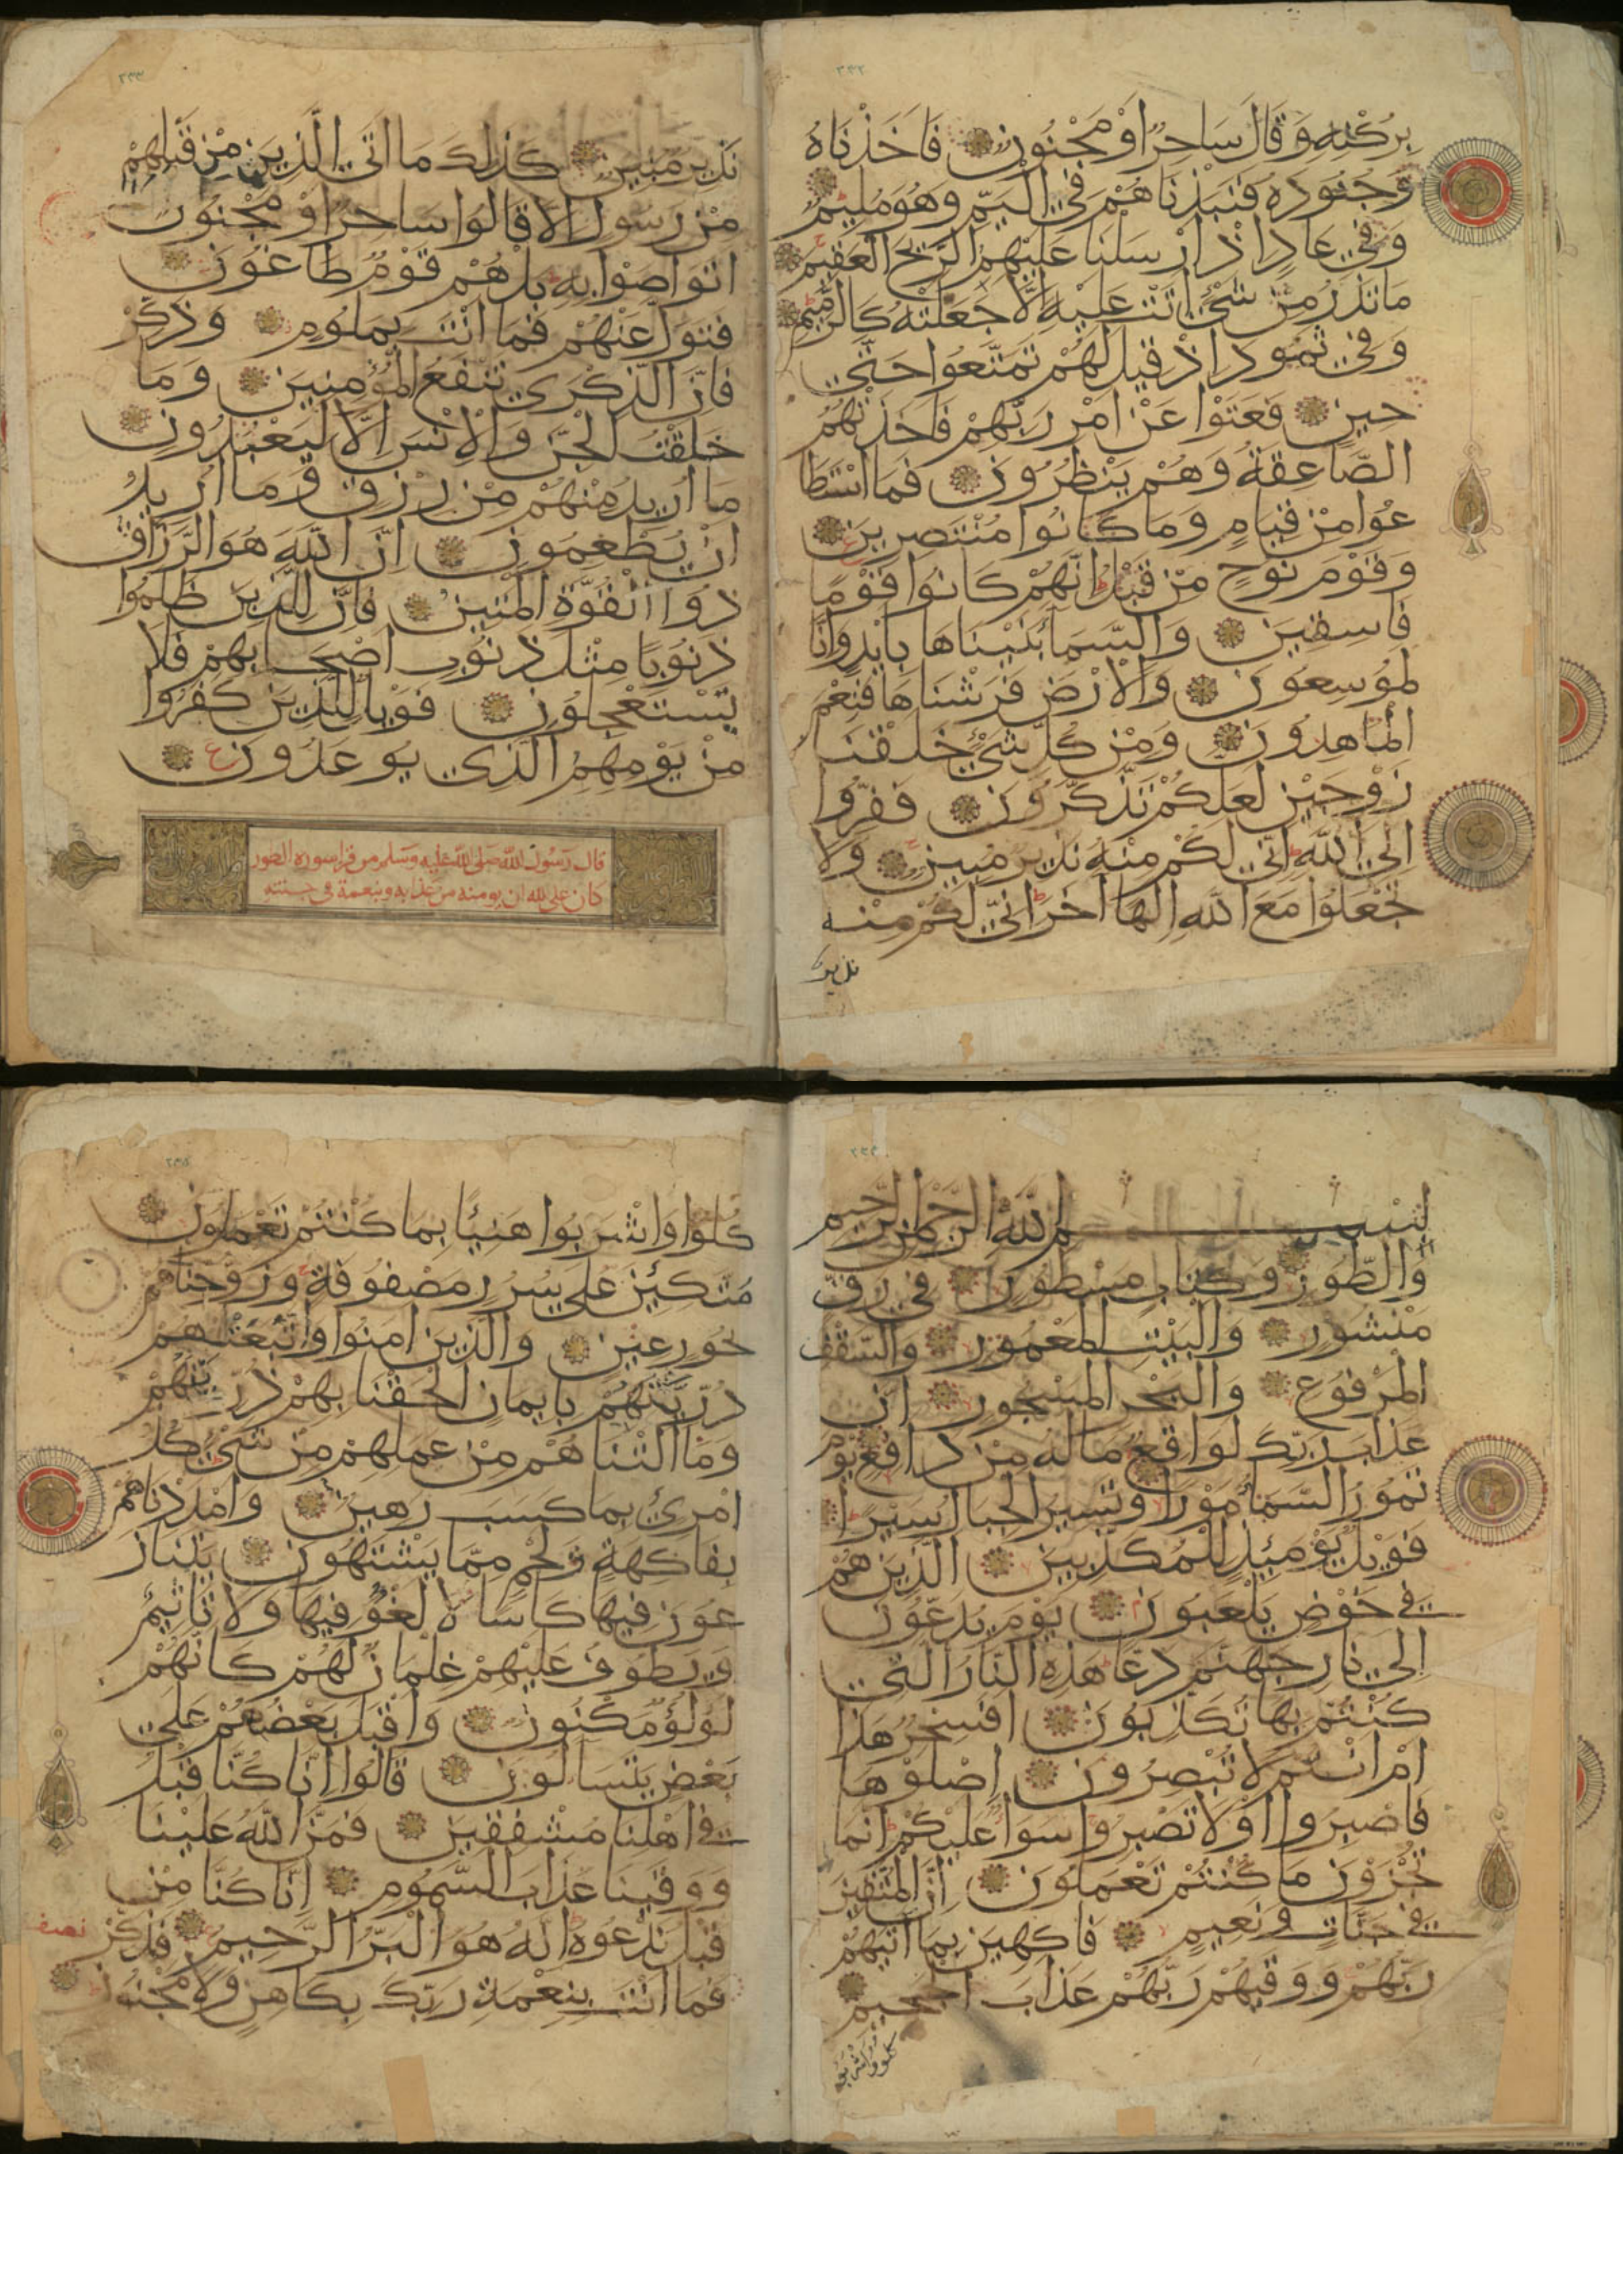 ٢٣٢
بركنه وقال ساحر او مجنون فاخذناه
وجنوده فنبذناهم في اليم وهو مليم
وفي عاد اذ ارسلنا عليهم الريح العقيم
ما تذر من شئ اتت عليه الا جعلته كالرميم
وفي ثمود اذ قيل لهم تمتعوا حتي
حين فعتوا عن امر ربهم فاخذتهم
الصاعقة وهم ينظرون فما استطا
عوا من قيام وما كانوا منتصرين
وقوم نوح من قبل انهم كانوا قوما
فاسقين والسما بنيناها بايد وانا
لموسعون والارض فرشناها فنعم
الماهدون ومن كل شئ خلقنا
زوجين لعلكم تذكرون ففروا
الي الله اني لكم منه نذير مبين ولا
تجعلوا مع الله الها اخر اني لكم منه
نذير
٢٣٣
نذير مبين كذلك ما اتي الذين من قبلهم
من رسول الا قالوا ساحر او مجنون
اتواصوا به بل هم قوم طاغون
فتول عنهم فما انت بملوم وذكر
فان الذكري تنفع المؤمنين وما
خلقت الجن والانس الا ليعبدون
ما اريد منهم من رزق وما اريد
ان يطعمون ان الله هو الرزاق
ذوا القوة المتين فان للذين ظلموا
ذنوبا مثل ذنوب اصحابهم فلا
يستعجلون فويل للذين كفروا
من يومهم الذي يوعدون ع
قال رسول الله صلى الله عليه وسلم من قرا سوره الطور
كان على الله ان يومنه من عذابه وينعمه في جنته
٢٣٤
بسم الله الرحمن الرحيم
والطور وكتاب مسطور في رق
منشور والبيت المعمور والسقف
المرفوع والبحر المسجور ان
عذاب ربك لواقع ما له من دافع يوم
تمور السماء مورا وتسير الجبال سيرا
فويل يومئذ للمكذبين الذين هم
في خوض يلعبون يوم يدعون
الي نار جهنم دعا هذه النار التي
كنتم بها تكذبون افسحر هذا
ام انتم لا تبصرون اصلوها
فاصبروا او لا تصبروا سوا عليكم انما
تجزون ما كنتم تعملون ان المتقين
في جنات ونعيم فاكهين بما اتيهم
ربهم ووقيهم ربهم عذاب الجحيم
كلوا واشربوا
٢٣٥
كلوا واشربوا هنيئا بما كنتم تعملون
متكئين علي سرر مصفوفة وزوجناهم
بحور عين والذين امنوا واتبعتهم
ذريتهم بايمان الحقنا بهم ذريتهم
وما التناهم من عملهم من شئ كل
امرئ بما كسب رهين وامددناهم
بفاكهة ولحم مما يشتهون يتناز
عون فيها كاسا لا لغو فيها ولا تاثيم
ويطوف عليهم غلمان لهم كانهم
لؤلؤ مكنون واقبل بعضهم علي
بعض يتسالون قالوا انا كنا قبل
في اهلنا مشفقين فمن الله علينا
ووقينا عذاب السموم انا كنا من
قبل ندعوه انه هو البر الرحيم فذكر
نصف
فما انت بنعمة ربك بكاهن ولا مجنون